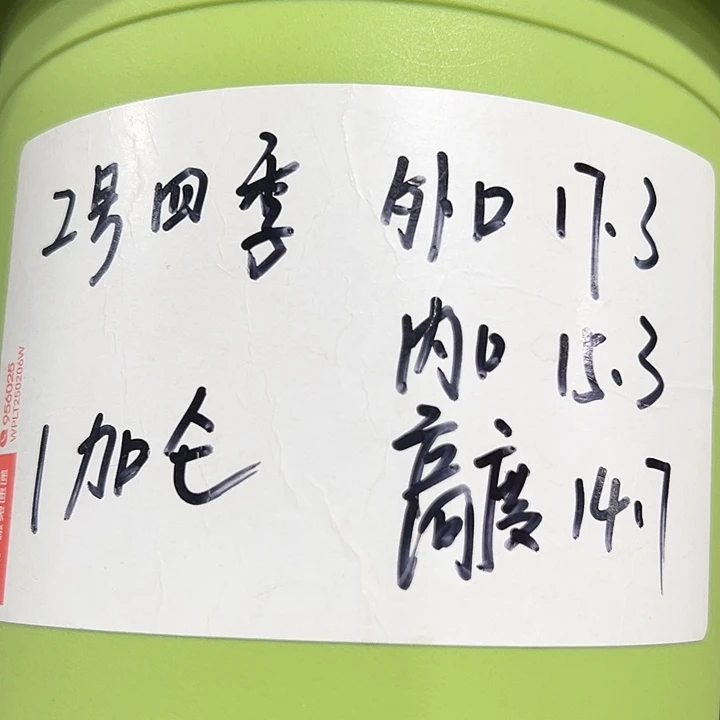 2号四季 外口 17.3
内口 15.3
1加仑 高度 14.7
956025
WPLT250206W